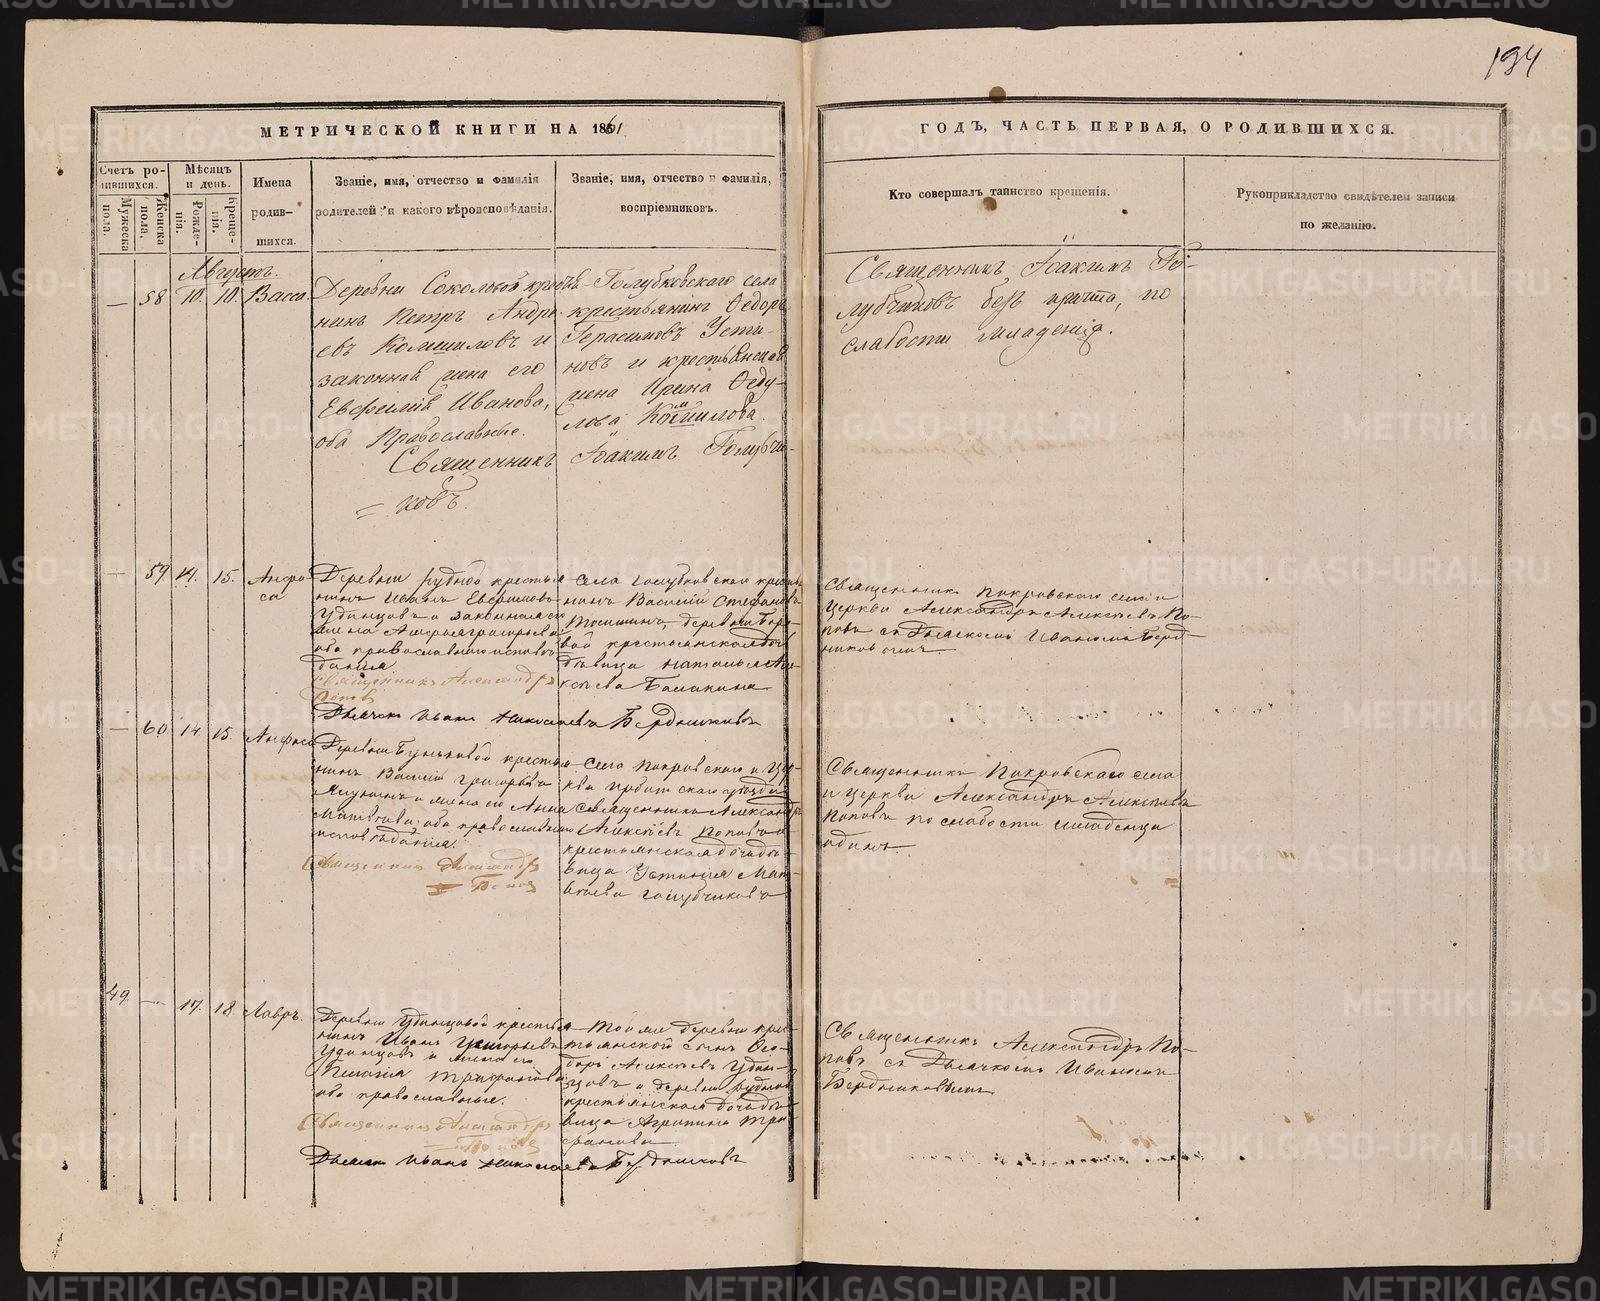 194
МЕТРИЧЕСКОЙ КНИГИ НА 1861
ГОДЪ, ЧАСТЬ ПЕРВАЯ, О РОДИВШИХСЯ.
Счетъ ро-
дившихся.
Мужеска
пола.
Женска
пола.
Мѣсяцъ
и день.
Рожде-
нія.
Креще-
нія.
Имена
родив-
шихся.
Званіе, имя, отчество и фамилія
родителей и какого вѣроисповѣданія.
Званіе, имя, отчество и фамилія,
воспріемниковъ.
Кто совершалъ таинство крещенія.
Рукоприкладство свидѣтелей записи
по желанію.
Августъ.
— 58 10. 10. Васса.
Деревни Соколовой кресть
нинъ Петръ Андре
евъ Комиловъ и
законная жена его
Евфимія Иванова,
оба Православные.
Голубковскаго села
крестьянинъ Ѳедоръ
Герасимовъ Усти-
новъ и крестьянская
жена Ирина Ѳеду-
лова
Священникъ Іоакимъ Голубчи-
ковъ.
Священникъ Іоакимъ Го-
лубчиковъ безъ причта, по
слабости младенца.
— 59 14. 15. Анфи
са
Деревни Рудной крестья
нинъ Иванъ
Удинцовъ и законная его
жена
оба православнаго исповѣ
данія
Священникъ Александръ
Поповъ
села Голубковскаго кресть
нинъ Василій Стефановъ
деревни
вой крестьянская доч
дѣвица Наталья Але
ксѣева
Дьячекъ Иванъ Николаевъ Бердниковъ
Священникъ Покровскаго села и
Церкви Александръ Алексѣевъ По-
повъ съ Дьячкомъ Иваномъ Берд-
никовымъ.
— 60 14. 15. Анфиса
Деревни Буньковой крестья
нинъ Василій Григорьевъ
и жена его Анна
Матвѣева оба православнаго
исповѣданія.
Священникъ Александръ
Поповъ
Села Покровскаго и Цер-
кви Ирбитскаго уѣзда
Священникъ Александръ
Алексѣевъ Поповъ и
крестьянская дочь дѣ-
вица Устинія Мат-
вѣева Голубчикова
Священникъ Покровскаго села
и Церкви Александръ Алексѣевъ
Поповъ по слабости младенца
одинъ.
49. — 17. 18. Лавръ.
Деревни Удинцовой крестья
нинъ Иванъ Григорьевъ
Удинцовъ и жена его
Пелагія Трифонова
оба православные.
Священникъ Александръ
Поповъ
Той же деревни крес-
тьянской сынъ Ѳео-
доръ Алексѣевъ Удин-
цовъ и деревни Рудной
крестьянская дочь дѣ-
вица Агрипина Три
фонова
Дьячекъ Иванъ Николаевъ Бердниковъ
Священникъ Александръ По-
повъ съ Дьячкомъ Иваномъ
Бердниковымъ
METRIKI.GASO-URAL.RU